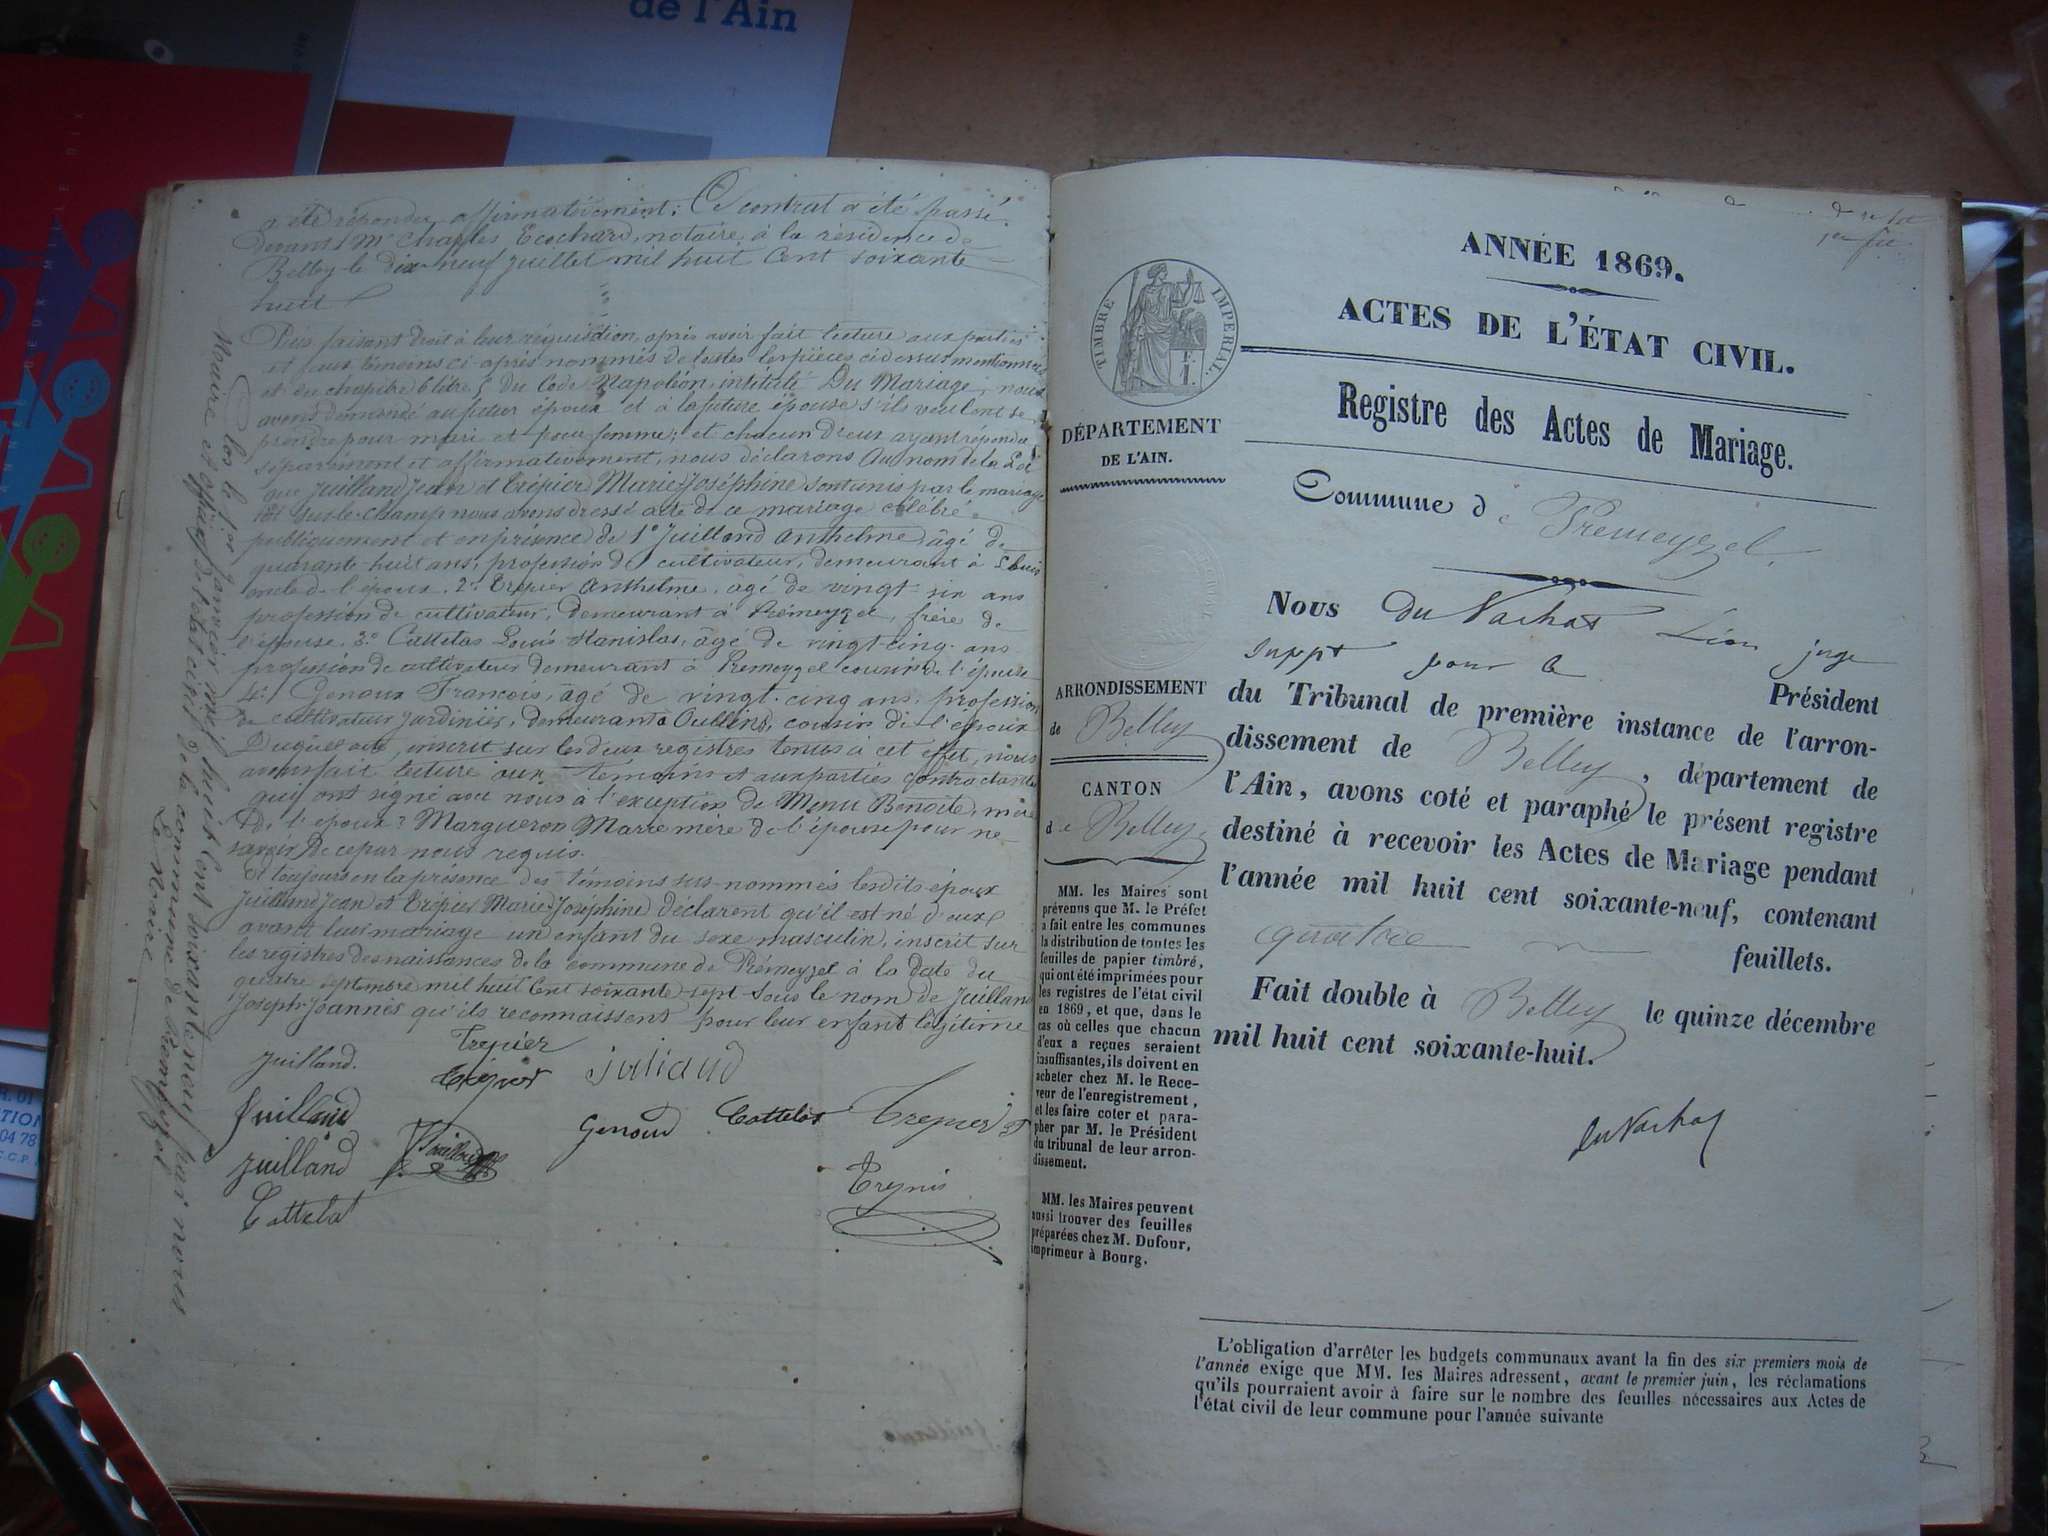 de l'Ain
a été répondu affirmativement; Ce contrat a été passé
devant Me Charles Ecochard, notaire à la résidence de
Belley le dix-neuf juillet mil huit Cent soixante
huit
Puis faisant droit à leur réquisition, après avoir fait lecture aux parties
et aux témoins ci-après nommés de toutes les pièces ci dessus mentionnées
et du chapitre 6 titre 5 du Code Napoléon, intitulé Du Mariage, nous
avons demandé au futur époux et à la future épouse s'ils veulent se
prendre pour mari et pour femme; et chacun d'eux ayant répondu
séparément et affirmativement, nous déclarons Au nom de la Loi
que Juilland Jean et Trépier Marie Joséphine sont unis par le mariage
et sur-le-champ nous avons dressé acte de ce mariage célébré
publiquement et en présence de 1° Juilland Anthelme âgé de
quarante huit ans, profession de cultivateur, demeurant à
de l'époux. 2° Trépier Anthelme, âgé de vingt-six ans
profession de cultivateur, demeurant à Prémeyzel, frère de
l'épouse. 3° Cattelas Louis Stanislas, âgé de vingt-cinq ans
profession de cultivateur demeurant à Prémeyzel cousin de l'épouse
4° Genoux François, âgé de vingt-cinq ans, profession
de cultivateur jardinier, demeurant à Oullins, cousin de l'époux
Duquel acte, inscrit sur les deux registres tenus à cet effet, nous
avons fait lecture aux témoins et aux parties contractantes
qui ont signé avec nous à l'exception de Menu Benoite, mère
de l'époux, Margueron Marie mère de l'épouse pour ne
savoir de ce par nous requis.
Et toujours en la présence des témoins sus-nommés lesdits époux
Juilland Jean et Trépier Marie Joséphine déclarent qu'il est né d'eux
avant leur mariage un enfant du sexe masculin, inscrit sur
les registres des naissances de la commune de Prémeyzel à la date du
quatre septembre mil huit Cent soixante-sept sous le nom de Juilland
Joseph-Joannès qu'ils reconnaissent pour leur enfant légitime
Juilland. Trepier Juliand
Trépier
Juilland Genoud Cattelas Trepier
Juilland
Cattelat
Clos le 1er janvier mil huit Cent soixante neuf par nous
Maire et officier de l'état civil de la commune de Prémeyzel
Le Maire
ANNÉE 1869.
ACTES DE L'ÉTAT CIVIL.
Registre des Actes de Mariage.
TIMBRE IMPÉRIAL
DÉPARTEMENT
DE L'AIN.
Commune de Prémeyzel
Nous Du Vachat Léon juge
suppt pour le Président
du Tribunal de première instance de l'arron-
dissement de Belley, département de
l'Ain, avons coté et paraphé le présent registre
destiné à recevoir les Actes de Mariage pendant
l'année mil huit cent soixante-neuf, contenant
quatre feuillets.
Fait double à Belley le quinze décembre
mil huit cent soixante-huit.
Du Vachat
ARRONDISSEMENT
de Belley
CANTON
de Belley
MM. les Maires sont
prévenus que M. le Préfet
a fait entre les communes
la distribution de toutes les
feuilles de papier timbré,
qui ont été imprimées pour
les registres de l'état civil
en 1869, et que, dans le
cas où celles que chacun
d'eux a reçues seraient
insuffisantes, ils doivent en
acheter chez M. le Rece-
veur de l'enregistrement,
et les faire coter et para-
pher par M. le Président
du tribunal de leur arron-
dissement.
MM. les Maires peuvent
aussi trouver des feuilles
préparées chez M. Dufour,
imprimeur à Bourg.
L'obligation d'arrêter les budgets communaux avant la fin des six premiers mois de
l'année exige que MM. les Maires adressent, avant le premier juin, les réclamations
qu'ils pourraient avoir à faire sur le nombre des feuilles nécessaires aux Actes de
l'état civil de leur commune pour l'année suivante